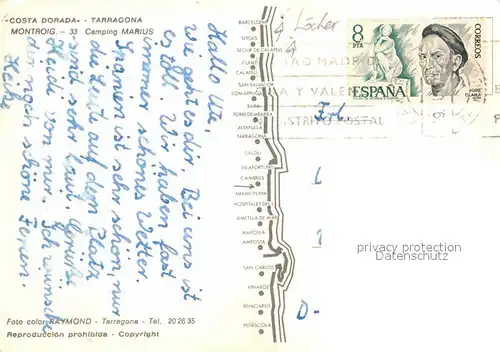 "COSTA DORADA" - TARRAGONA
MONTROIG. - 33 Camping MARIUS
Hallo Ute,
wie geht es dir. Bei uns ist
es toll. Wir haben fast
immer schönes Wetter.
Spanien ist sehr schön nur
die Leute auf dem Platz
sind sehr laut. Grüße
Heidi von mir. Ich wünsche
dir noch schöne Ferien.
BARCELONA
SITGES
SEGUR DE CALAFELL
CUNIT
CALAFELL
SAN SALVADOR
COMARRUGA
BARA
TORREDEMBARRA
ALTAFULLA
TARRAGONA
SALOU
VILAFORTUNY
CAMBRILS
MIAMI PLAYA
HOSPITALET DEL I.
AMETLLA DE MAR
AMPOLLA
AMPOSTA
SAN CARLOS
VINAROZ
BENICARLO
PEÑISCOLA
4 Löcher
8
PTA
CORREOS
ESPAÑA
JOSE
CLARA
MADRID
A Y VALEN
DISTRITO POSTAL
Frl.
D-
privacy protection
Datenschutz
Foto color RAYMOND - Tarragona - Tel. 20 26 35
Reproducción prohibida - Copyright